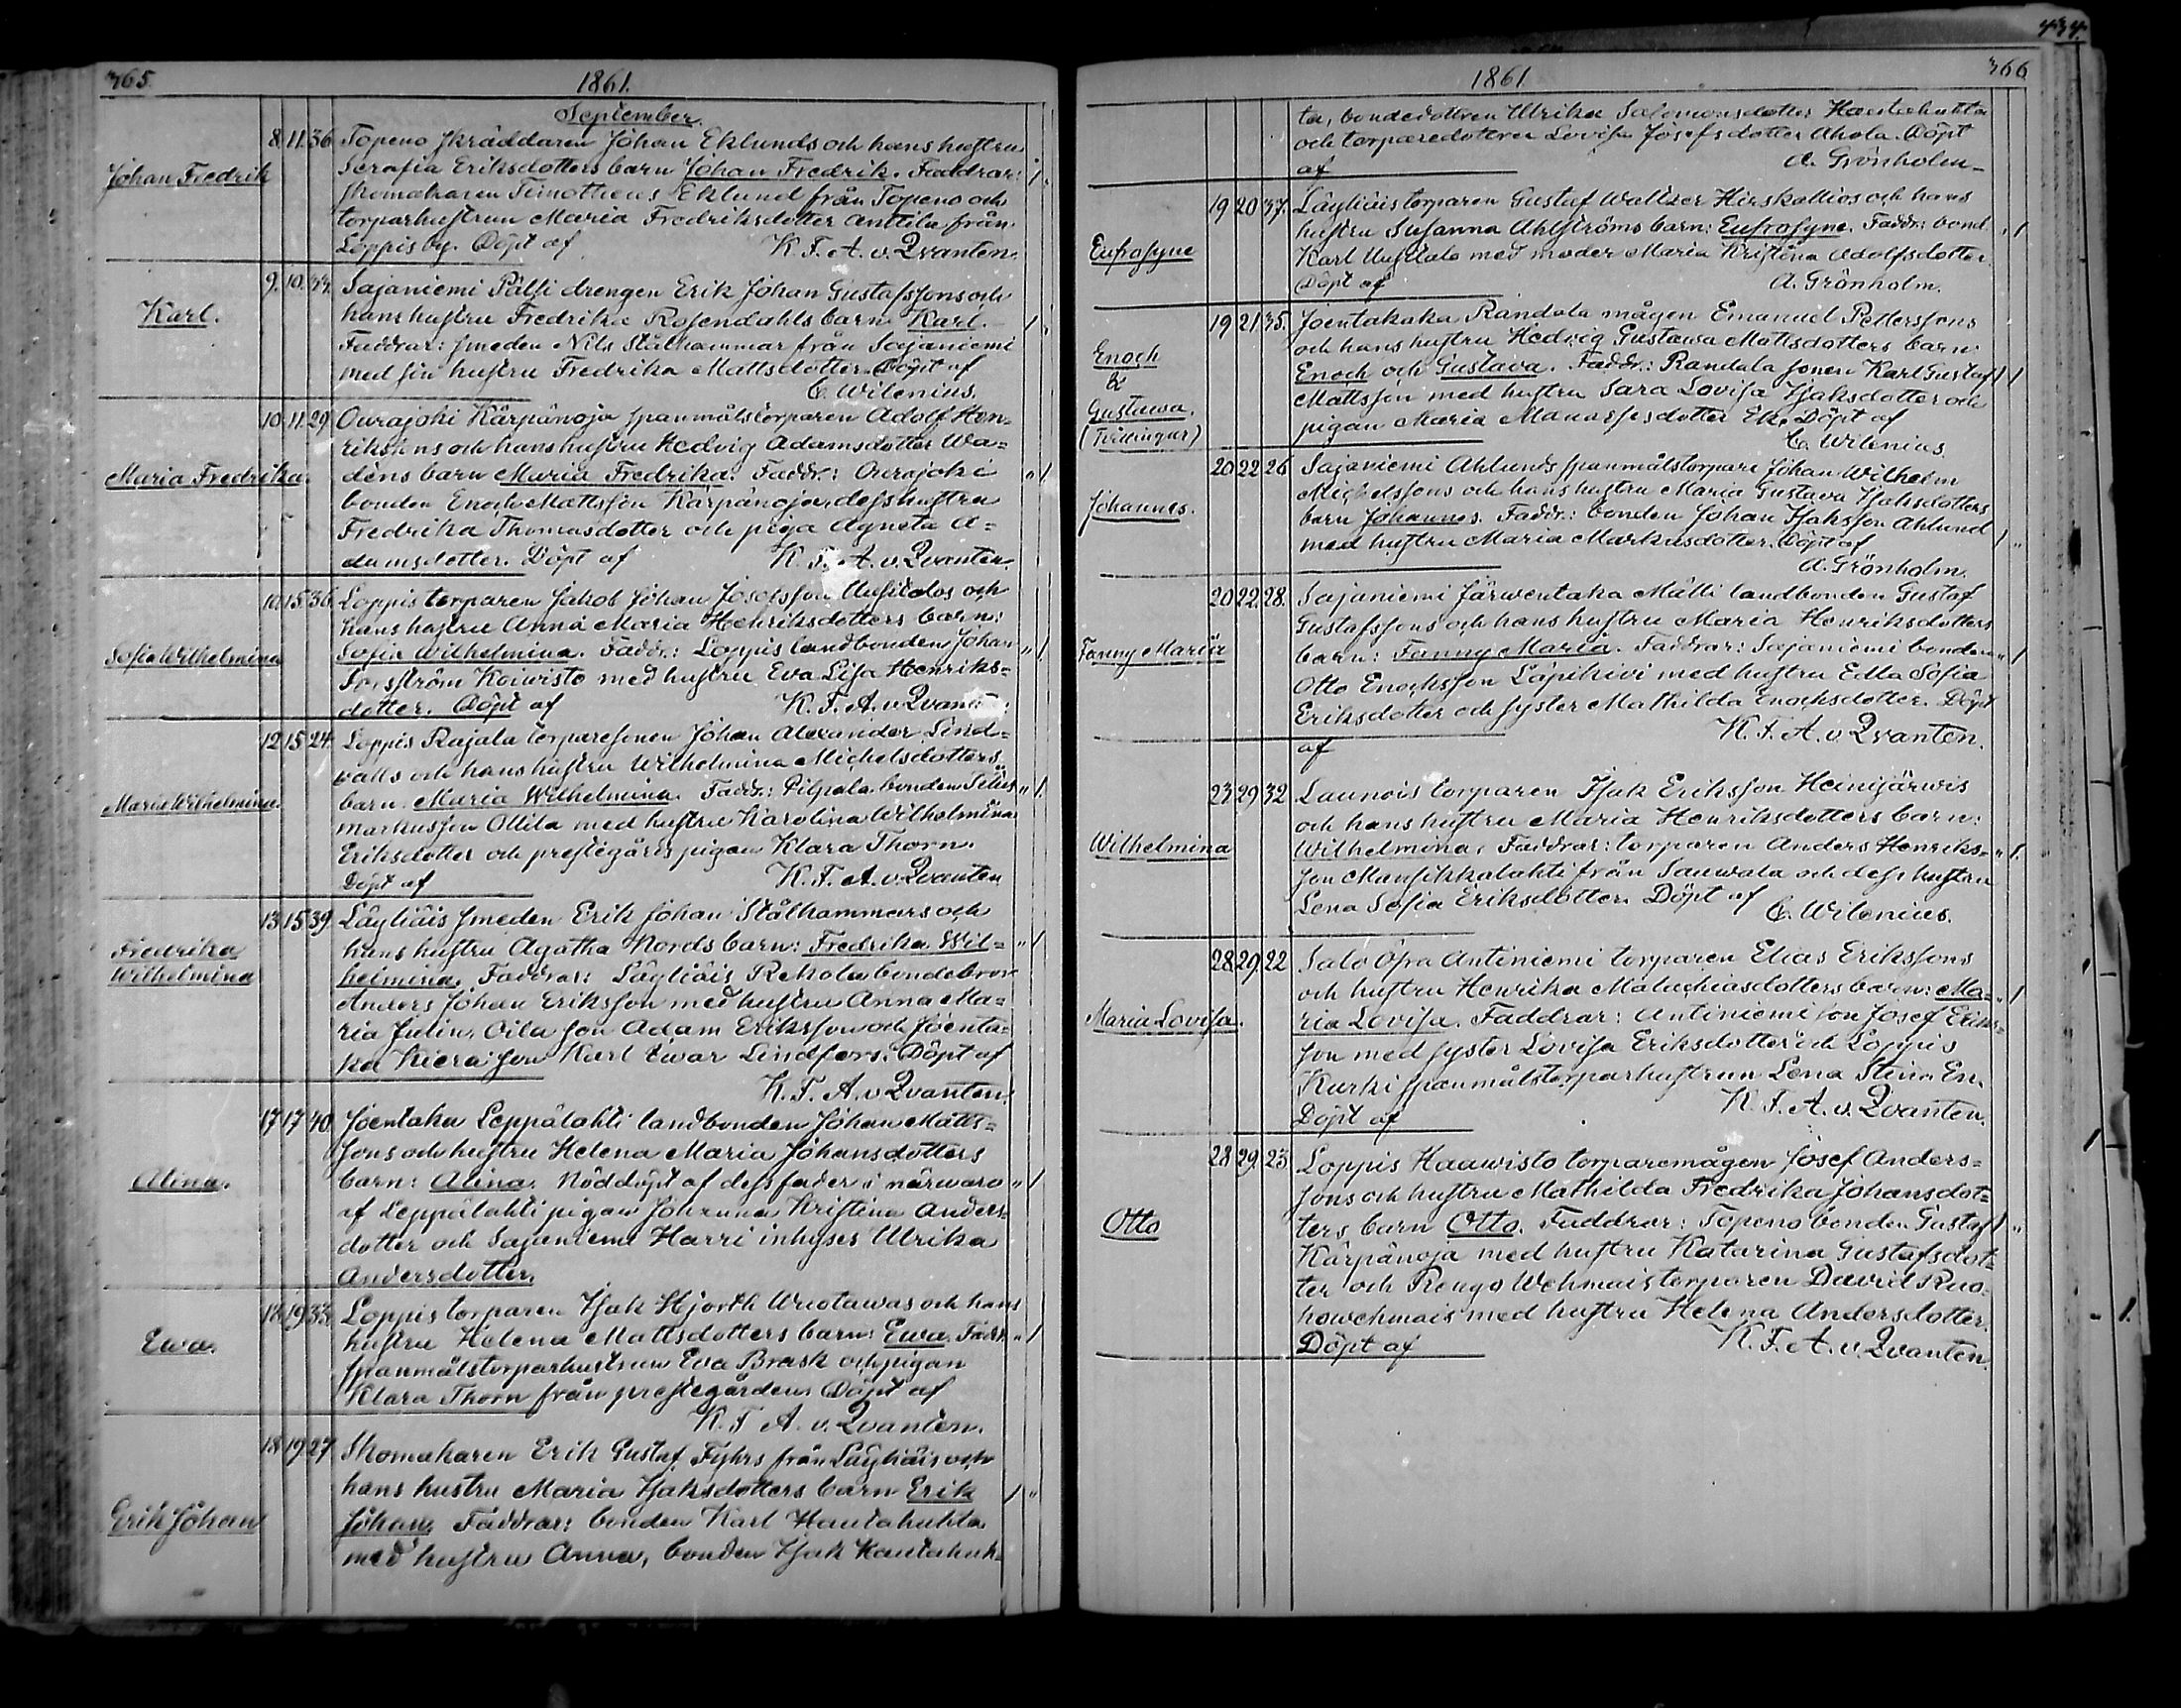 434.
365
1861.
September.
Johan Fredrik
8 11. 36. Topeno skräddaren Johan Eklunds och hans hustru
Serafia Eriksdotters barn Johan Fredrik. Faddrar: 1 "
skomakaren Timotheus Eklund från Topeno och
torparhustrun Maria Fredriksdotter Anttila från
Loppis by. Döpt af K. F. A. v. Qvanten.
Karl.
9. 10. Sajaniemi Pälli drengen Erik Johan Gustafssons och
hans hustru Fredrika Rosendahls barn Karl. 1 "
Faddrar: smeden Nils Stålhammar från Sajaniemi
med sin hustru Fredrika Mattsdotter. Döpt af
C. Wilenius.
Maria Fredrika.
10. 11. 29. Ourajoki Kärpänoja spanmålstorparen Adolf Hen-
rikssons och hans hustru Hedvig Adamsdotter Wa-
déns barn Maria Fredrika. Faddr.: Ourajoki " 1
bonden Enoch Mattsson Kärpänoja, dess hustru
Fredrika Thomasdotter och piga Agneta A-
damsdotter. Döpt af K. F. A. v. Qvanten.
Sofia Wilhelmina
10. 15. 36. Loppis torparen Jakob Johan Josefsson Uusitalos och
hans hustru Anna Maria Henriksdotters barn:
Sofia Wilhelmina. Faddr.: Loppis landbonden Johan " 1
Forsström Koiwisto med hustru Eva Lisa Henriks-
dotter. Döpt af K. F. A. v. Qvanten.
Maria Wilhelmina.
12 15 24. Loppis Rajala torparesonen Johan Alexander Lind-
valls och hans hustru Wilhelmina Michelsdotters
barn Maria Wilhelmina. Faddr.: Pilpala bonden Titus " 1.
Markusson Ollila med hustru Karolina Wilhelmina
Eriksdotter och prestegårds pigan Klara Thorn.
Döpt af K. F. A. v. Qvanten
Fredrika
Wilhelmina
13. 15. 39. Läyliäis smeden Erik Johan Stålhammars och
hans hustru Agatha Nords barn: Fredrika Wil- " 1
helmina. Faddrar: Läyliäis Rekola bondebror
Anders Johan Eriksson med hustru Anna Ma-
ria Julin, Oila son Adam Eriksson och Joenta-
ka Kiera son Karl Ewar Lindfors. Döpt af
K. F. A. v. Qvanten.
Alina.
17. 17. 40. Joentaka Leppälahti landbonden Johan Matts-
sons och hustru Helena Maria Johansdotters
barn: Alina. Nöddöpt af dess fader i närwaro " 1
af Leppälahti pigan Johanna Kristina Anders-
dotter och Sajaniemi Harri inhyses Ulrika
Andersdotter.
Ewa.
18. 19. 33. Loppis torparen Isak Hjorth Wuotawas och hans
hustru Helena Mattsdotters barn: Ewa. Faddr. " 1
spanmålstorparhustrun Eva Brask och pigan
Klara Thorn från prestegården. Döpt af
K. F. A. v. Qvanten.
Erik Johan
18. 19. 27. Skomakaren Erik Gustaf Fyhrs från Läyliäis och
hans hustru Maria Isaksdotters barn Erik 1 "
Johan. Faddrar: bonden Karl Hautahuhta
med hustru Anna, bonden Isak Hautahuh-
1861
366
ta, bondedottren Ulrika Salomonsdotter Hautahuhta
och torparedottren Lovisa Josefsdotter Ahola. Döpt
af A. Grönholm.
Eufrosyne
19 20 37. Läyliäis torparen Gustaf Walltser Hirskallios och hans
hustru Susanna Ahlströms barn: Eufrosyne. Faddr.: bond. " 1
Karl Uusitalo med moder Maria Kristina Adolfsdotter.
Döpt af A. Grönholm.
Enoch
&
Gustawa.
(Tvillingar)
19 21 35. Joentakaka Randala mågen Emanuel Petterssons
och hans hustru Hedvig Gustawa Mattsdotters barn:
Enoch och Gustava. Faddr.: Randala sonen Karl Gustaf 1 1
Mattsson med hustru Sara Lovisa Isaksdotter och
pigan Maria Manassesdotter Ek. Döpt af
C. Wilenius.
Johannes.
20 22 26 Sajaniemi Ahlunds spanmålstorpare Johan Wilhelm
Michelssons och hans hustru Maria Gustava Isaksdotters
barn Johannes. Faddr.: bonden Johan Isaksson Ahlund
med hustru Maria Markusdotter. Döpt af 1 "
A. Grönholm.
Fanny Maria
20. 22. 28. Sajaniemi Järwentaka Mälli landbonden Gustaf
Gustafssons och hans hustru Maria Henriksdotters
barn: Fanny Maria. Faddrar: Sajaniemi bonden " 1
Otto Enochsson Läpikivi med hustru Edla Sofia
Eriksdotter och syster Mathilda Enochsdotter. Döpt
af K. F. A. v. Qvanten.
Wilhelmina
23. 29. 32. Launois torparen Isak Eriksson Heinijärwis
och hans hustru Maria Henriksdotters barn:
Wilhelmina. Faddrar: torparen Anders Henriks- " 1.
son Mansikkalahti från Sauwala och dess hustru
Lena Sofia Eriksdotter. Döpt af C. Wilenius.
Maria Lovisa.
28. 29. 22. Salo Öfra Antiniemi torparen Elias Erikssons
och hustru Henrika Malachiasdotters barn: Ma- " 1
ria Lovisa. Faddrar: Antiniemi son Josef Eriks-
son med syster Lovisa Eriksdotter och Loppis
Kurki spanmålstorparhustrun Lena Stina En.
Döpt af K. F. A. v. Qvanten.
Otto
28. 29. 23. Loppis Haawisto torparemågen Josef Anders-
sons och hustru Mathilda Fredrika Johansdot-
ters barn Otto. Faddrar: Topeno bonden Gustaf 1 "
Kärpänoja med hustru Katarina Gustafsdot-
ter och Rengo Wehmais torparen David Ruo-
howehmais med hustru Helena Andersdotter.
Döpt af K. F. A. v. Qvanten.